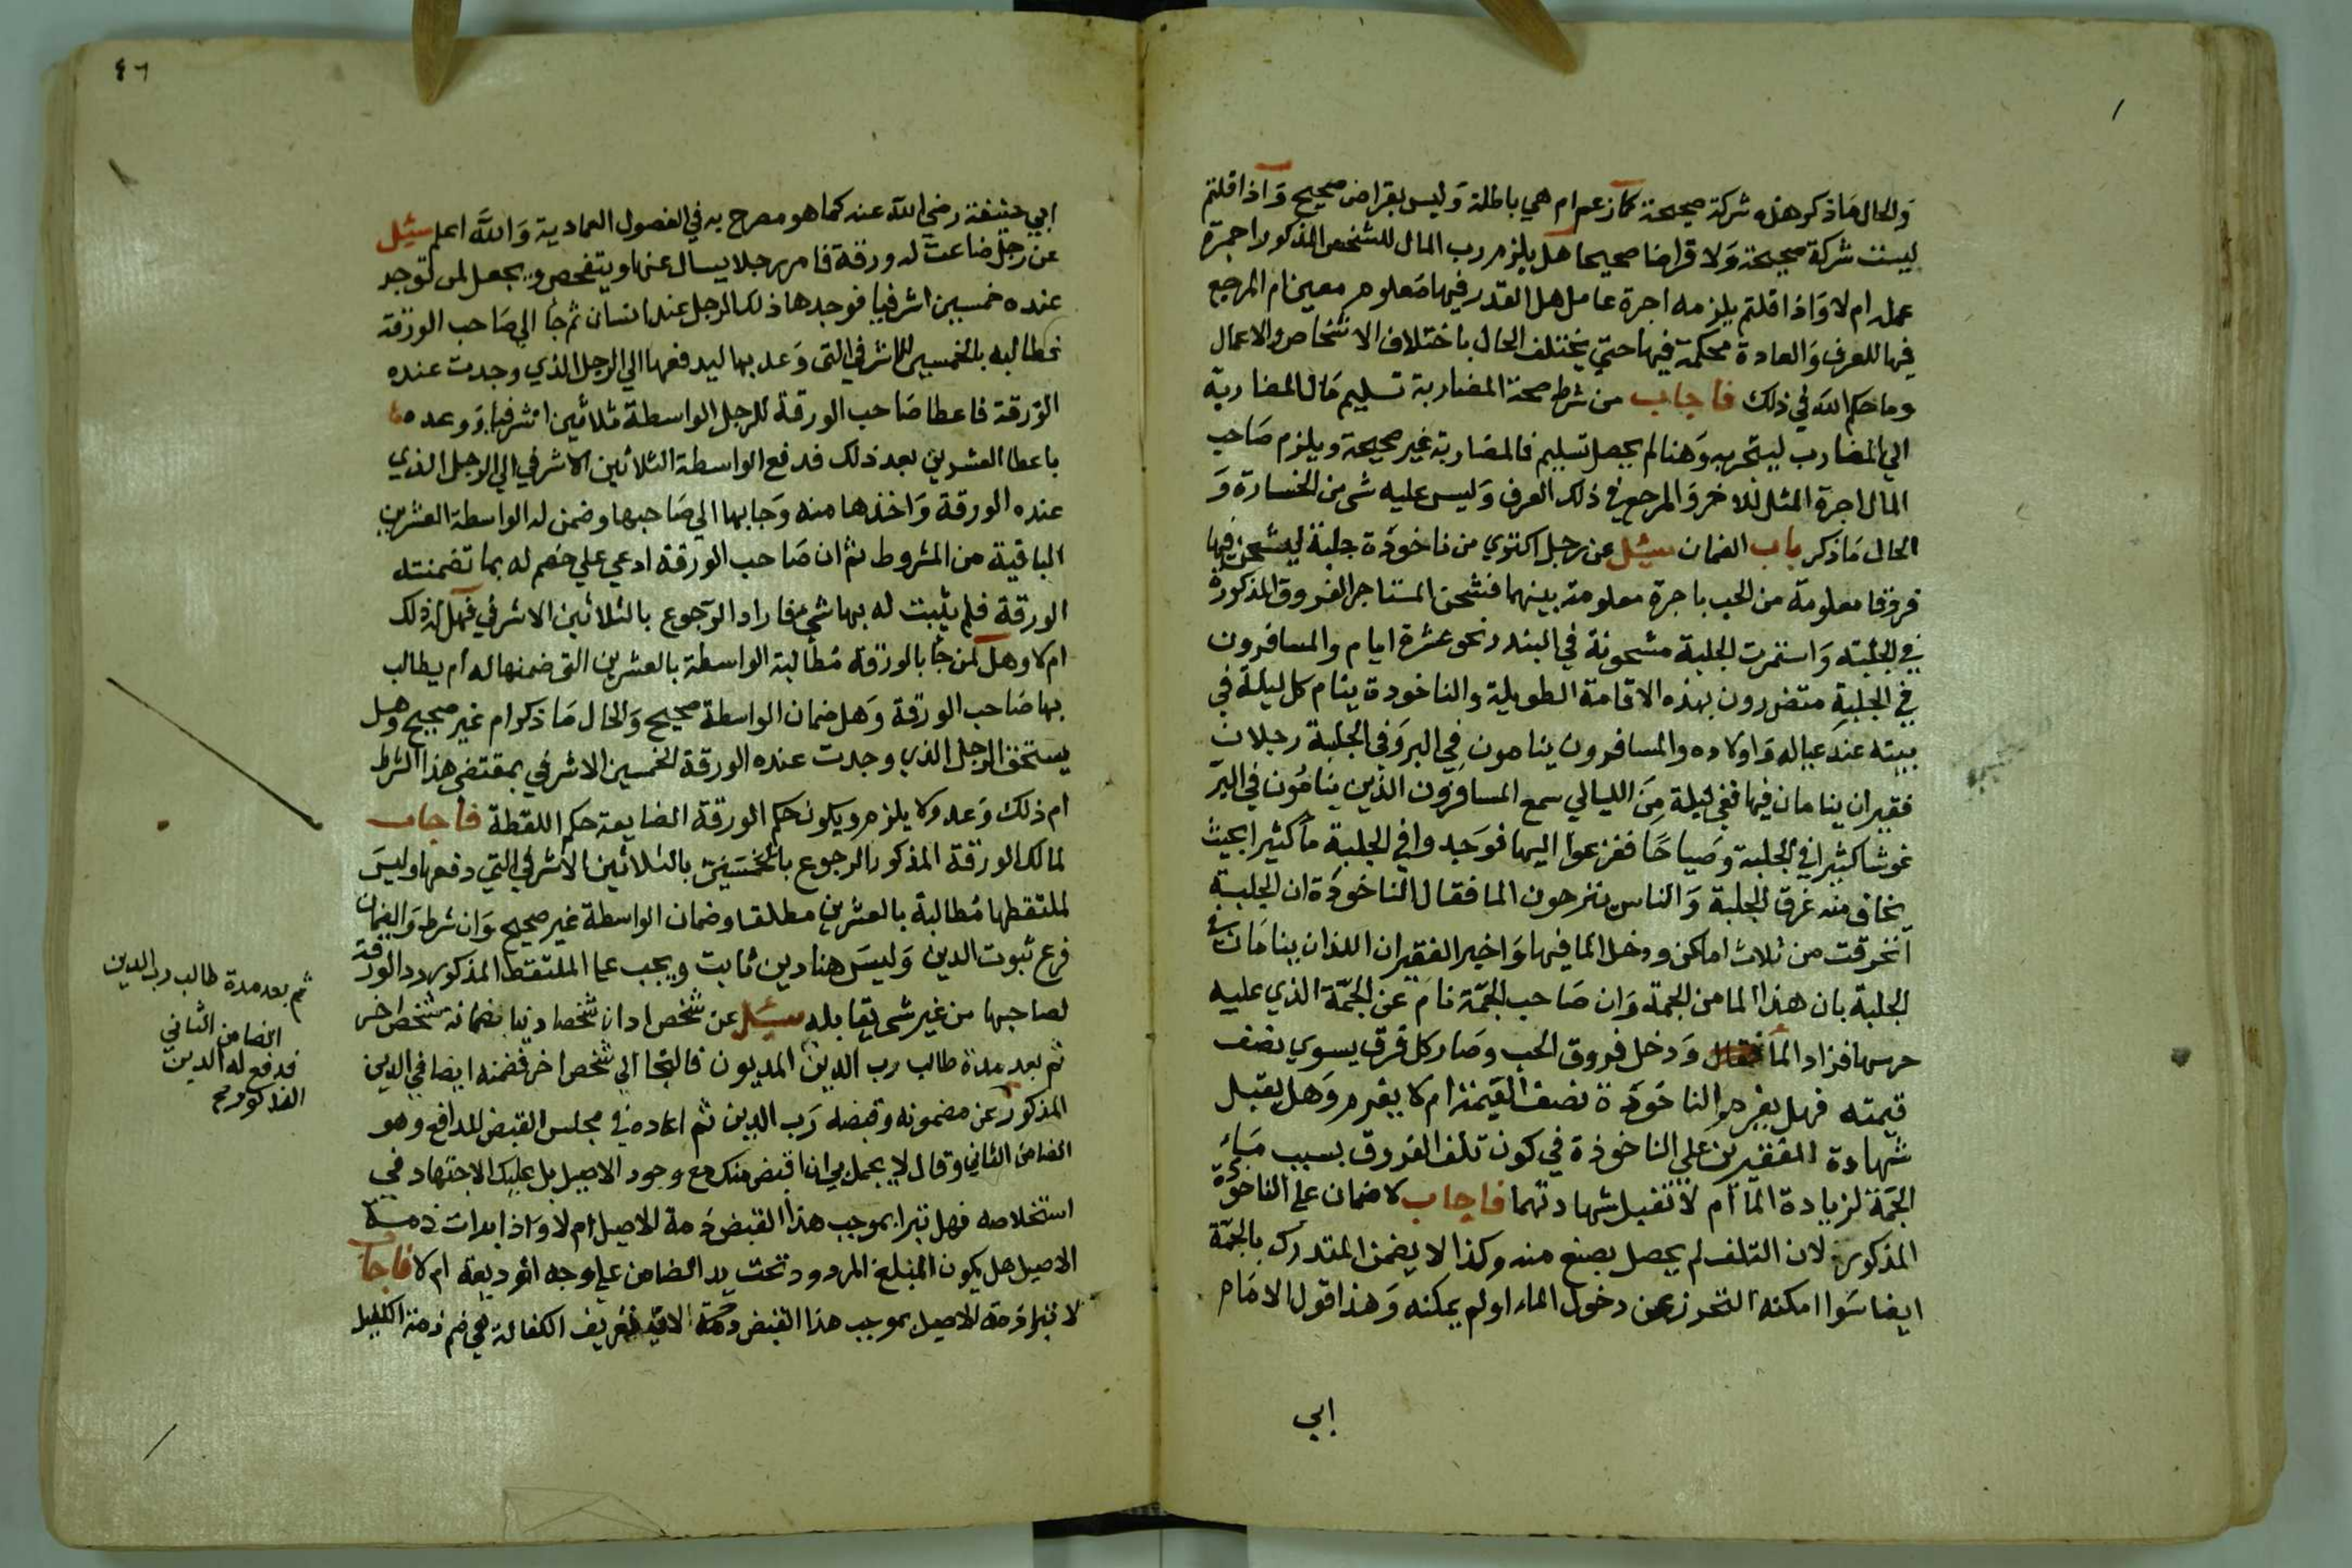 والحال ماذكر هذه شركة صحيحة كما زعم ام هي باطلة وليس بقراض صحيح واذا قلتم
ليست شركة صحيحة ولا قراضا صحيحا هل يلزم رب المال للشخص المذكور اجرة
عمله ام لا واذا قلتم يلزمه اجرة عامل هل القدر فيها معلوم معين ام المرجع
فيها للعرف والعادة محكمة فيها حتى يختلف الحال باختلاف الاشخاص والاعمال
وما حكم الله في ذلك فاجاب من شرط صحة المضاربة تسليم مال المضاربة
الي المضارب ليتجر به وهنا لم يحصل تسليم فالمضاربة غير صحيحة ويلزم صاحب
المال اجرة المثل للاخر والمرجع في ذلك العرف وليس عليه شي من الخسارة و
الحال ماذكر باب الضمان سئل عن رجل اكتري من ناخوذة جلبة ليشحن فيها
فروقا معلومة من الحب باجرة معلومة بينهما فشحن المستاجر الفروق المذكورة
في الجلبة واستمرت الجلبة مشحونة في البندر نحو عشرة ايام والمسافرون
في الجلبة متضررون بهذه الاقامة الطويلة والناخوذة ينام كل ليلة في
بيته عند عياله واولاده والمسافرون ينامون في البر وفي الجلبة رجلان
فقيران ينامان فيها ففي ليلة من الليالي سمع المسافرون الذين ينامون في البر
غوشا كثيرا في الجلبة وصياحا ففزعوا اليها فوجدوا في الجلبة ما كثيرا بحيث
يخاف منه غرق الجلبة والناس ينزحون الما فقال الناخوذة ان الجلبة
انخرقت من ثلاث اماكن ودخل الما فيها واخبر الفقيران اللذان ينامان في
الجلبة بان هذا الما من الجمة وان صاحب الجمة نام عن الجمة الذي عليه
حرسها فزاد الما ودخل فروق الحب وصار كل فرق يسوي نصف
قيمته فهل يغرم الناخوذة نصف القيمة ام لا يغرم وهل يقبل
شهادة الفقيرين علي الناخوذة في كون تلف الفروق بسبب ماء
الجمة لزيادة الما ام لا تقبل شهادتهما فاجاب لا ضمان علي الناخوذة
المذكور لان التلف لم يحصل بصنع منه وكذا لا يضمن المتدرك بالجمة
ايضا سوا امكنه التحرز عن دخول الماء اولم يمكنه وهذا قول الامام
ابي
٤٦
ابي حنيفة رضي الله عنه كما هو مصرح به في الفصول العمادية والله اعلم سئل
عن رجل ضاعت له ورقة فامر رجلا يسال عنها ويتفحص ويجعل لمن توجد
عنده خمسين اشرفيا فوجدها ذلك الرجل عند انسان ثم جا الي صاحب الورقة
فطالبه بالخمسين الاشرفي التي وعد بها ليدفعها الي الرجل الذي وجدت عنده
الورقة فاعطا صاحب الورقة للرجل الواسطة ثلاثين اشرفيا ووعده
باعطا العشرين بعد ذلك فدفع الواسطة الثلاثين الاشرفي الي الرجل الذي
عنده الورقة واخذها منه وجا بها الي صاحبها وضمن له الواسطة العشرين
الباقية من المشروط ثم ان صاحب الورقة ادعي علي خصم له بما تضمنته
الورقة فلم يثبت له بها شي فاراد الرجوع بالثلاثين الاشرفي فهل له ذلك
ام لا وهل لمن جا بالورقة مطالبة الواسطة بالعشرين التي ضمنها له ام يطالب
بها صاحب الورقة وهل ضمان الواسطة صحيح والحال ما ذكر ام غير صحيح وهل
يستحق الرجل الذي وجدت عنده الورقة الخمسين الاشرفي بمقتضي هذا الشرط
ام ذلك وعد ولا يلزم ويكون حكم الورقة الضايعة حكم اللقطة فاجاب
لمالك الورقة المذكور الرجوع بالثلاثين الاشرفي التي دفعها وليس
لملتقطها مطالبة بالعشرين مطلقا وضمان الواسطة غير صحيح وان شرط والضمان
فرع ثبوت الدين وليس هنا دين ثابت ويجب علي الملتقط المذكور رد الورقة
لصاحبها من غير شي يقابله سئل عن شخص ادان شخصا دينا بضمانة شخص اخر
ثم بعد مدة طالب رب الدين المديون فالتجا الي شخص اخر فضمنه ايضا في الدين
المذكور عن مضمونه وقبضه رب الدين ثم اعاده في مجلس القبض للدافع وهو
الضامن الثاني وقال لا يجمل بي ان اقبض منك مع وجود الاصيل بل عليك الاجتهاد في
استخلاصه فهل تبرا بموجب هذا القبض ذمة الاصيل ام لا واذا برات ذمة
الاصيل هل يكون المبلغ المردود تحت يد الضامن علي وجه الوديعة ام لا فاجاب
لا تبرا ذمة الاصيل بموجب هذا القبض تعريف الكفالة هي ضم ذمة الكفيل
ثم بعد مدة طالب رب الدين
الضامن الثاني
فدفع له الدين
المذكور صح